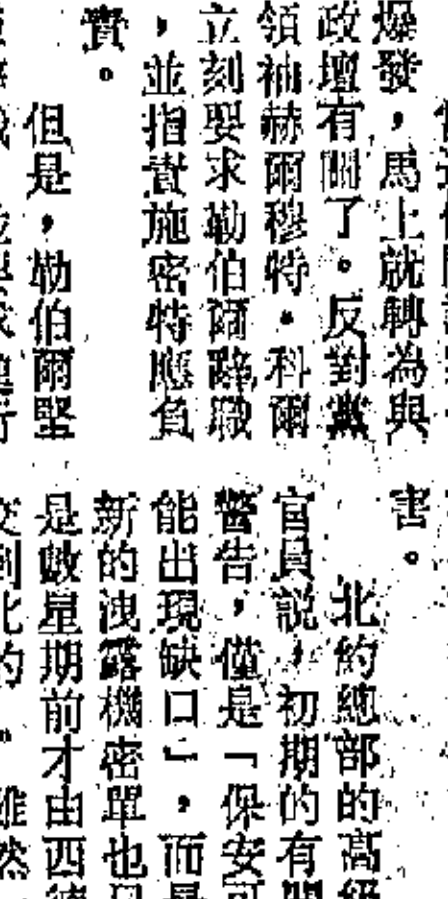 爆發，馬上就轉為與
政壇有關了。反對黨
領袖赫爾穆特·科爾
立刻要求勒伯爾辭職
，並指責施密特應負
責。
但是，勒伯爾堅
害。
北約總部的高級
官員説，初期的有關
警告，僅是「保安可
能出現缺口」，而是
新的洩露機密單也
是數星期前才由西德